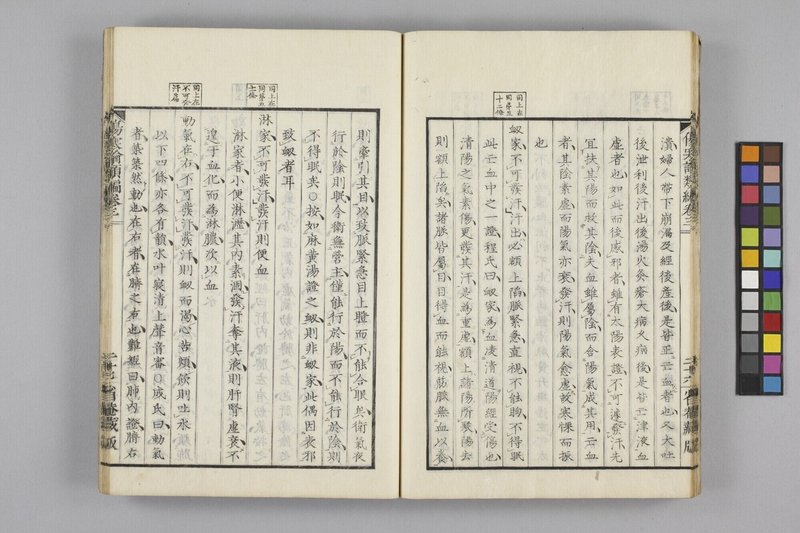 瀆婦人帶下崩漏及經後產後是皆亡血者也又大吐
後泄利後汗出後湯火灸瘡大病久病後是皆亡津液血
虛者也如此而後感邪者雖有太陽表證不可遽發汗先
宜扶其陽而救其陰夫血雖屬陰而合陽氣成其用亡血
者其陰素虛而陽氣亦衰發汗則陽氣愈虛故寒慄而振
也
衂家不可發汗汗出必額上陷脈緊急直視不能眴不得眠
此亡血中之一證程氏曰衂家為血淩清道陽經受傷也
清陽之氣素傷更發其汗是為重虛額上諸陽所聚陽去
則額上陷矣諸脈皆屬目目得血而能視筋脈無血以養
則牽引其目以致脈緊急目上瞪而不能合眼矣衛氣夜
行於陰則眠今衛無營主僅能行於陽而不能行於陰則
不得眠矣○按如麻黃湯證之衂則非衂家此偶因表邪
致衂者耳
淋家不可發汗發汗則便血
淋家者小便淋瀝其內素涸發汗奪其液則肝腎虛衰不
遑于血化而為淋膿次以血
動氣在右不可發汗發汗則衂而渴心苦煩飲則吐水
以下四條亦各有韻水叶寢清上聲音審○成氏曰動氣
者築築然動也在右者在臍之右也難經曰肺內證臍右
同上在
同上在
不可發
傷寒論類編卷三